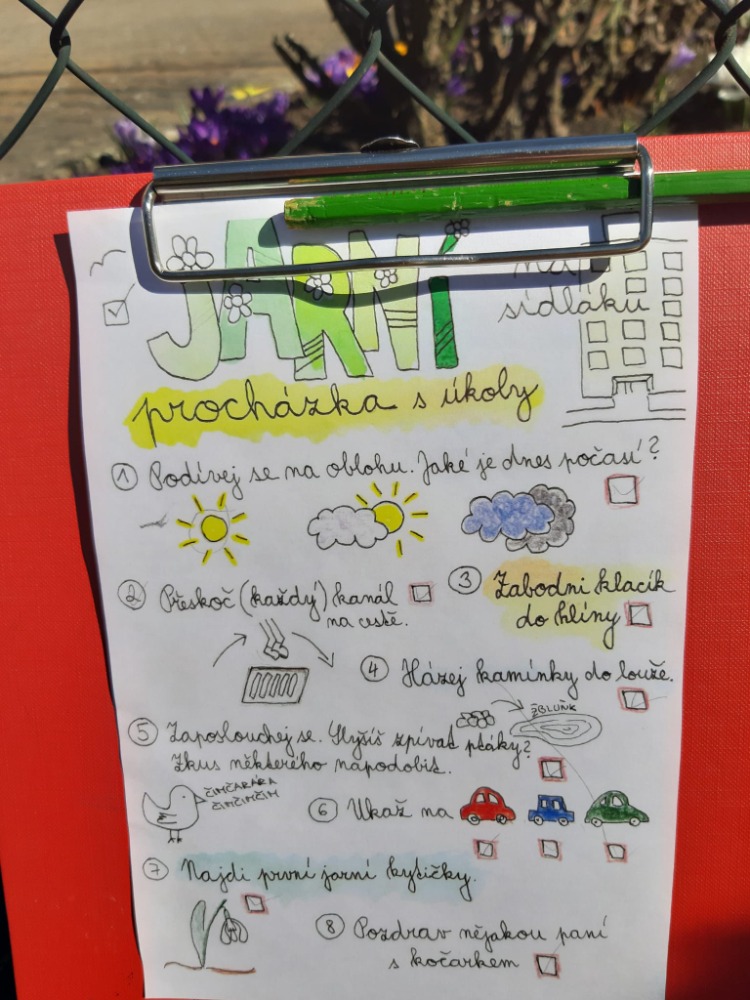 JARNÍ
na
sídláku
procházka s úkoly
1 Podívej se na oblohu. Jaké je dnes počasí?
2 Přeskoč (každý) kanál
na cestě.
3 Zabodni klacík
do hlíny
4 Házej kamínky do louže.
ŽBLUŇK
5 Zaposlouchej se. Slyšíš zpívat ptáky?
Zkus některého napodobit.
ČIMČARARA
ČIMČIMČIM
6 Ukaž na
7 Najdi první jarní kytičky.
8 Pozdrav nějakou paní
s kočárkem